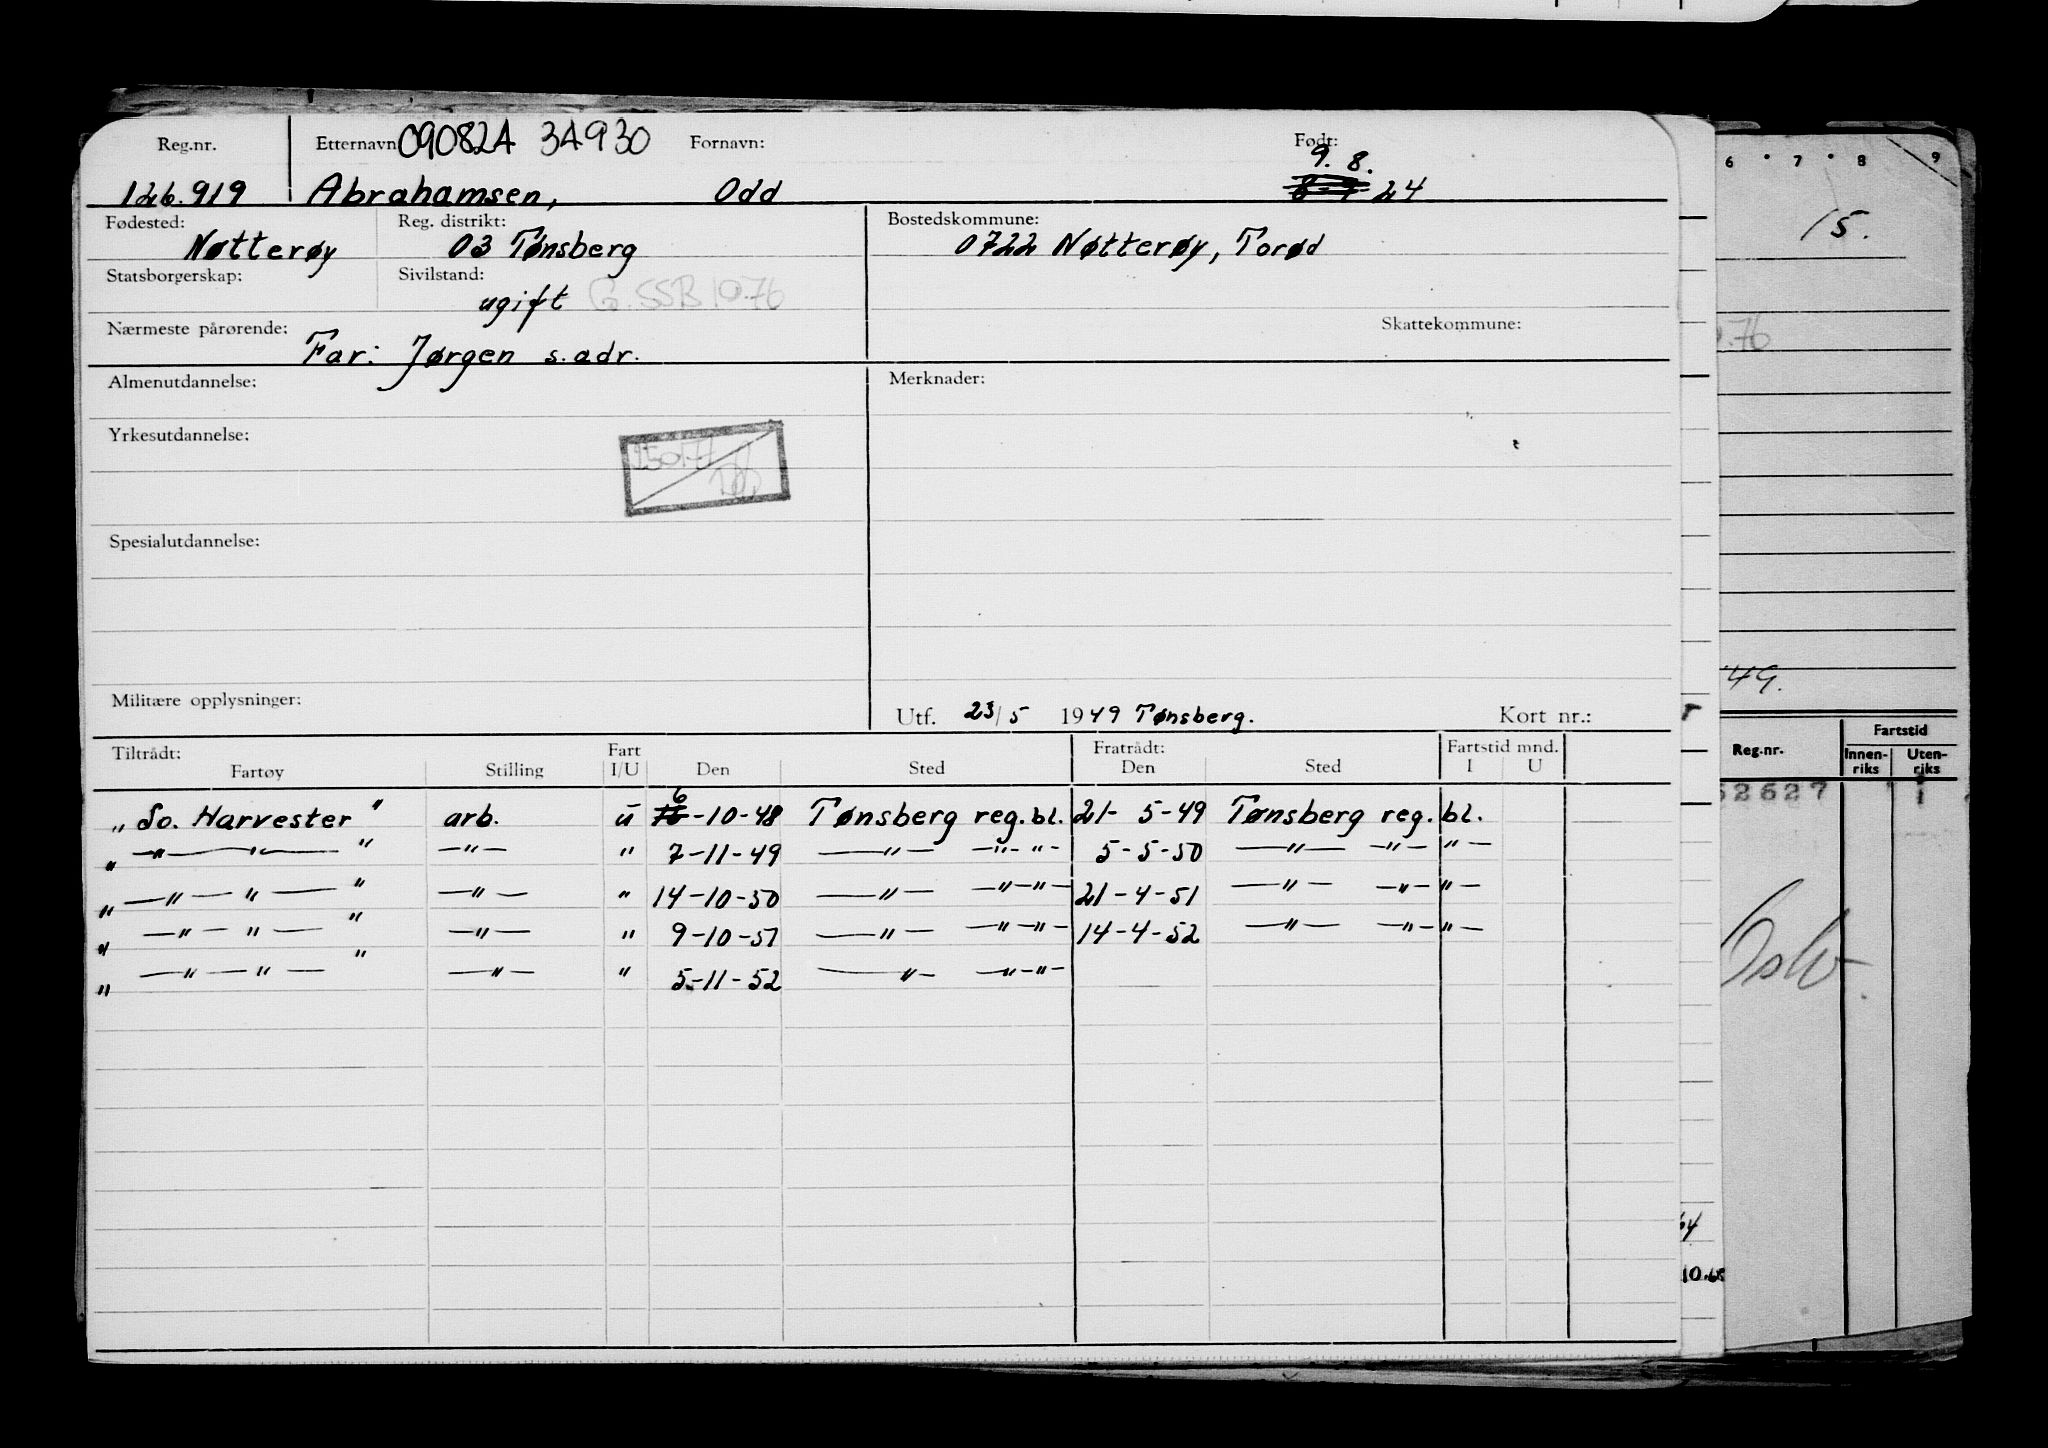 Reg.nr. Etternavn 090824 34930 Fornavn: Født:
9. 8.
126.919 Abrahamsen, Odd 24
Fødested: Reg. distrikt: Bostedskommune:
Nøtterøy 03 Tønsberg 0722 Nøtterøy, Torød
Statsborgerskap: Sivilstand:
ugift G. SSB 10.76
Nærmeste pårørende: Skattekommune:
Far: Jørgen s. adr.
Almenutdannelse: Merknader:
Yrkesutdannelse:
Spesialutdannelse:
Militære opplysninger:
Utf. 23/5 1949 Tønsberg. Kort nr.:
Tiltrådt: Fart Fratrådt: Fartstid mnd.
Fartøy Stilling I/U Den Sted Den Sted I U
"So. Harvester" arb. u 6-10-48 Tønsberg reg. bl. 21-5-49 Tønsberg reg. bl.
" —"— " — " —"— " 7-11-49 —"— —"—"— 5-5-50 —"— —"—"—
" —"— " — " —"— " 14-10-50 —"— —"—"— 21-4-51 —"— —"—"—
" —"— " — " —"— " 9-10-51 —"— —"—"— 14-4-52 —"— —"—"—
" —"— " — " —"— " 5-11-52 —"— —"—"—
6 7 8 9
15.
.76
49.
Reg.nr. Fartstid
Innen-riks Uten-riks
52627
Oslo
10.6